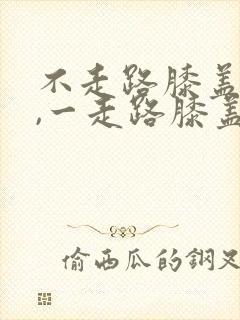 不走路膝盖
,一走路膝盖
偷西瓜的鋼叉